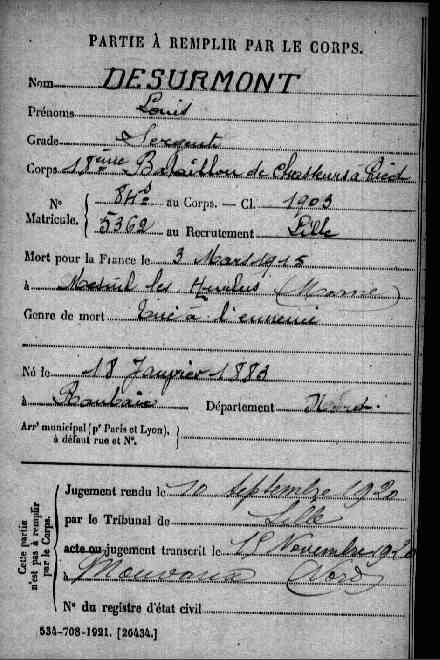 PARTIE À REMPLIR PAR LE CORPS.
Nom DESURMONT
Prénoms Louis
Grade Sergent
Corps 18ème Bataillon de Chasseurs à Pied
N° Matricule. { au Corps. — Cl. 1903
5362 au Recrutement Lille
Mort pour la France le 3 Mars 1915
à Mesnil les Hurlus (Marne)
Genre de mort Tué à l'ennemi
Né le 18 Janvier 1883
à Roubaix Département Nord.
Arrt municipal (pr Paris et Lyon), à défaut rue et N°. }
Cette partie n'est pas à remplir par le Corps.
Jugement rendu le 10 septembre 1920
par le Tribunal de Lille
acte ou jugement transcrit le 15 Novembre 1920
à Mouvaux (Nord)
N° du registre d'état civil
534-708-1921. [26434.]